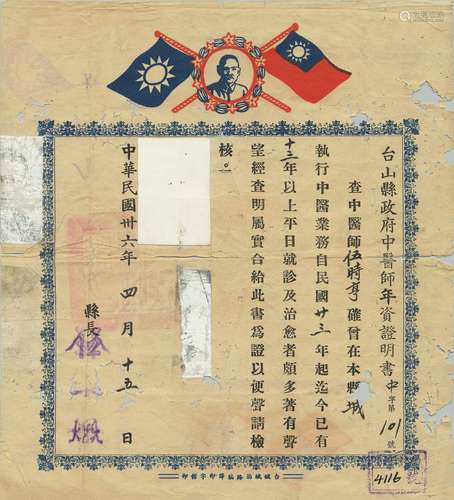 台山縣政府中醫師年資證明書 中字第101號
查中醫師伍時亨確曾在本縣城
執行中醫業務自民國廿三年起迄今已有
十三年以上平日就診及治愈者頗多著有聲
望經查明屬實合給此書爲證以便聲請檢
核。
中華民國卅六年四月十五日
縣長
4116